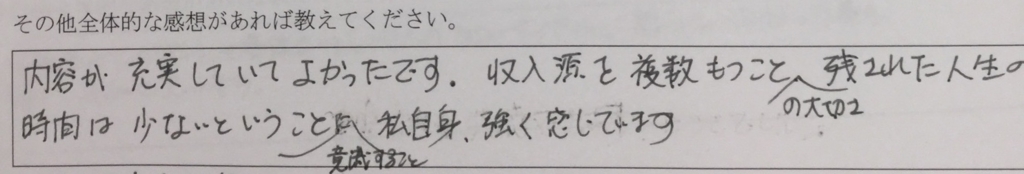 その他全体的な感想があれば教えてください。
内容が充実していてよかったです。収入源を複数もつことの大切さ残された人生の
時間は少ないということ意識すること私自身、強く感じています